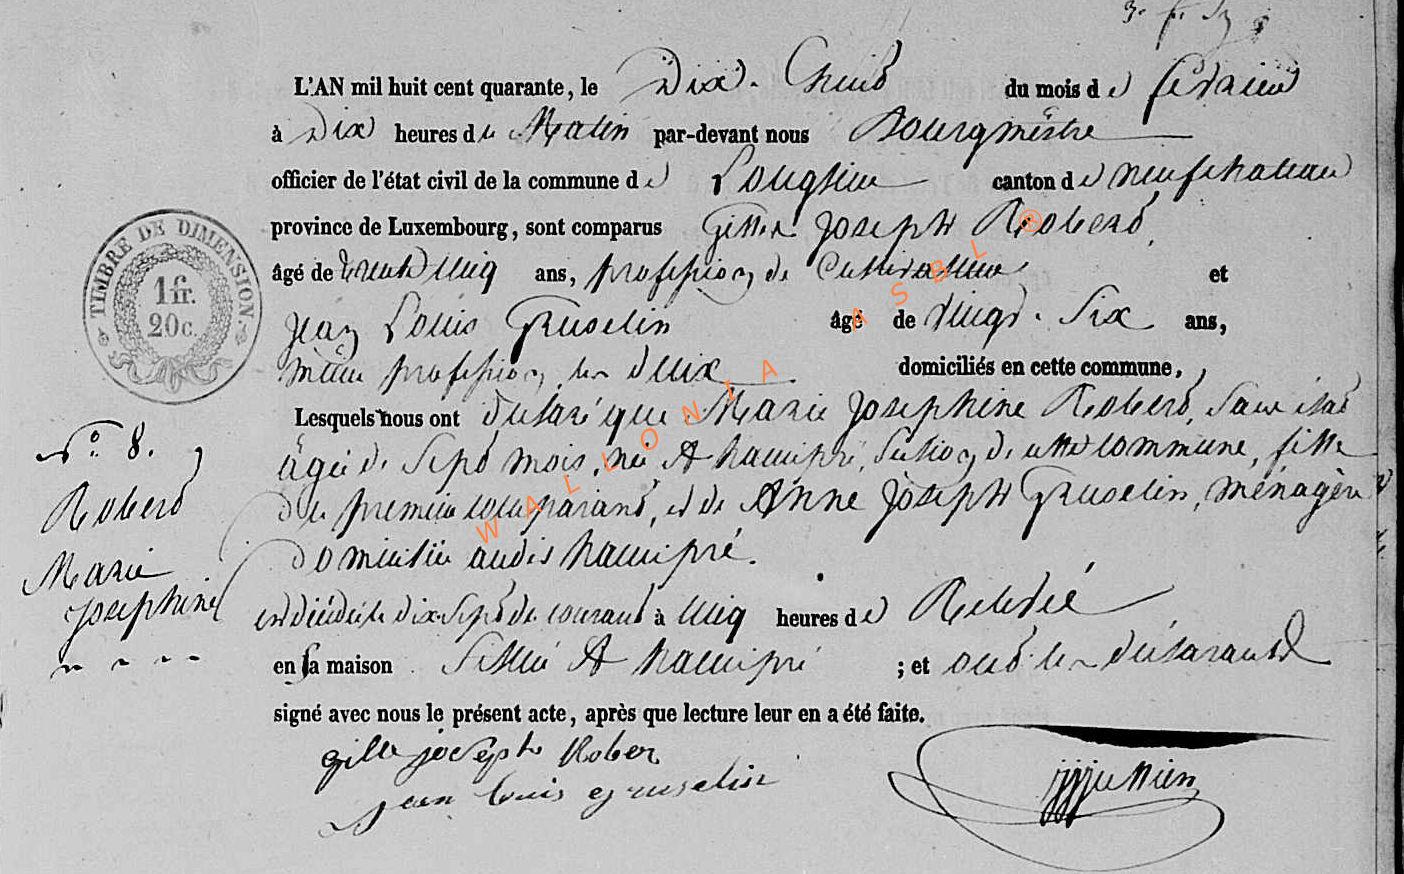 L'AN mil huit cent quarante, le Dix-huit du mois de février
à Dix heures du Matin par-devant nous Bourgmestre
officier de l'état civil de la commune de Longlier canton de neufchateau
province de Luxembourg, sont comparus Gille Joseph Robert,
âgé de trente cinq ans, profession de Cultivateur et
Jean Louis Gruselin âgé de vingt-Six ans,
même profession, les deux domiciliés en cette commune,
Lesquels nous ont déclaré que Marie Josephine Robert, sans état
âgée de Sept mois, née A hamipré, Section de cette commune, fille
du premier comparant, et de Anne Joseph Gruselin, ménagère
domiciliée audit hamipré.
est décédée le dix-Sept du courant à cinq heures de Relevée
en sa maison Située A hamipré ; et ont les déclarants
signé avec nous le présent acte, après que lecture leur en a été faite.
gille joseph Rober
jean louis gruselin
TIMBRE DE DIMENSION
1 fr.
20 c.
N° 8.
Robert
Marie
Josephine
WALLONIA ASBL ®